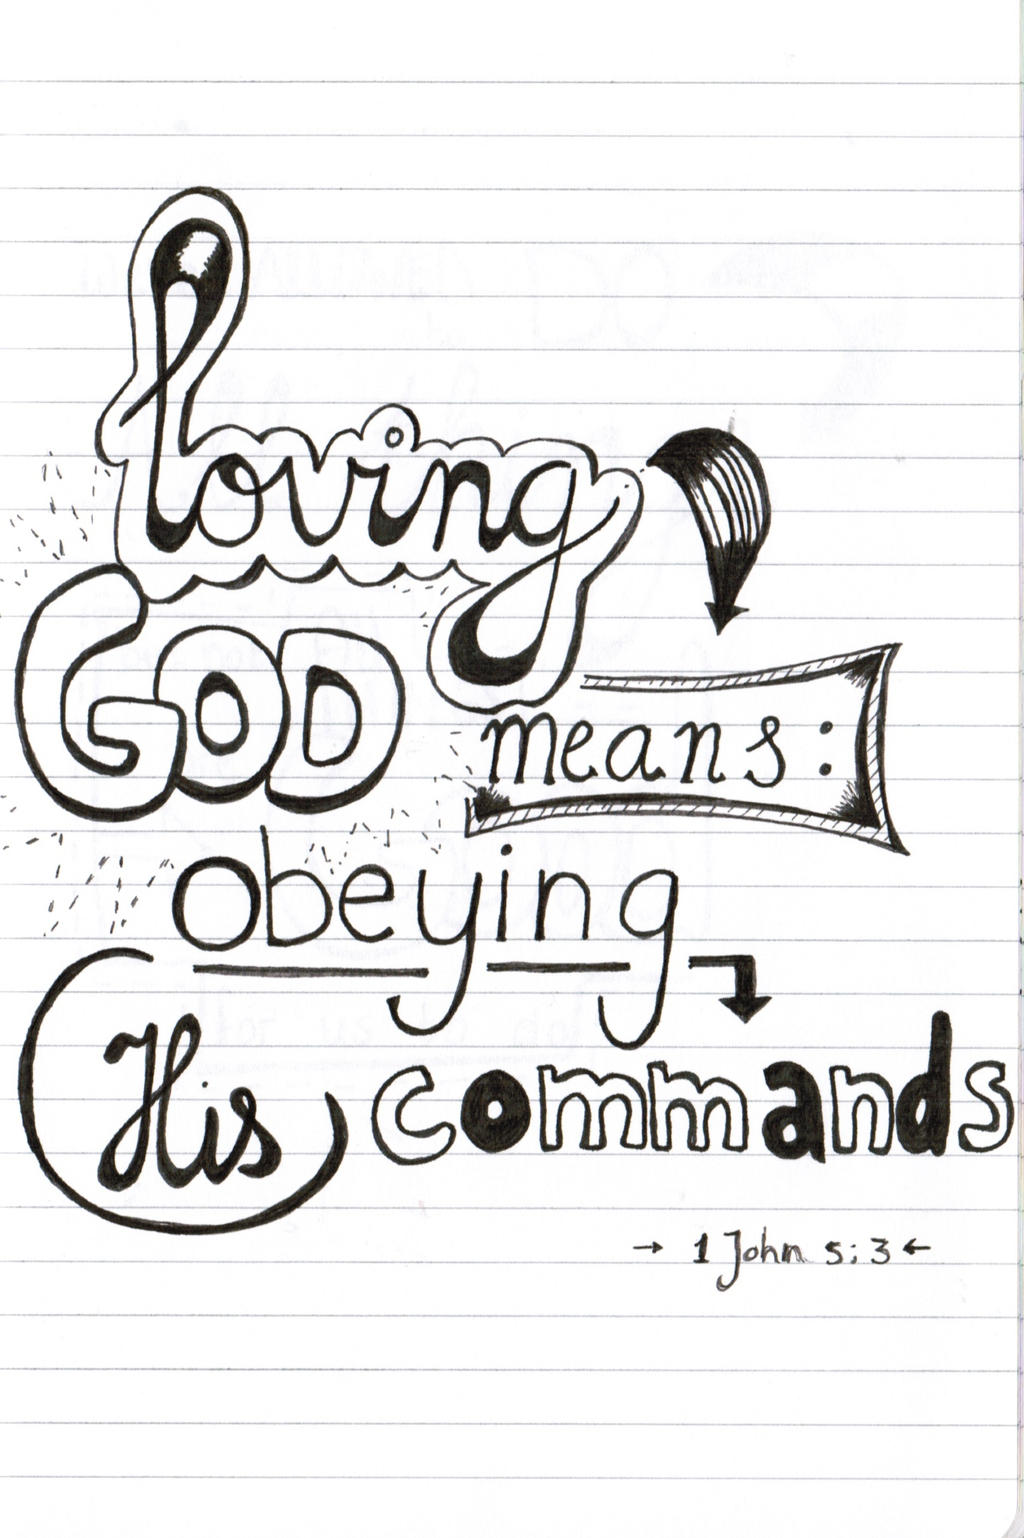 loving
GOD means:
obeying
His commands
→ 1 John 5:3 ←